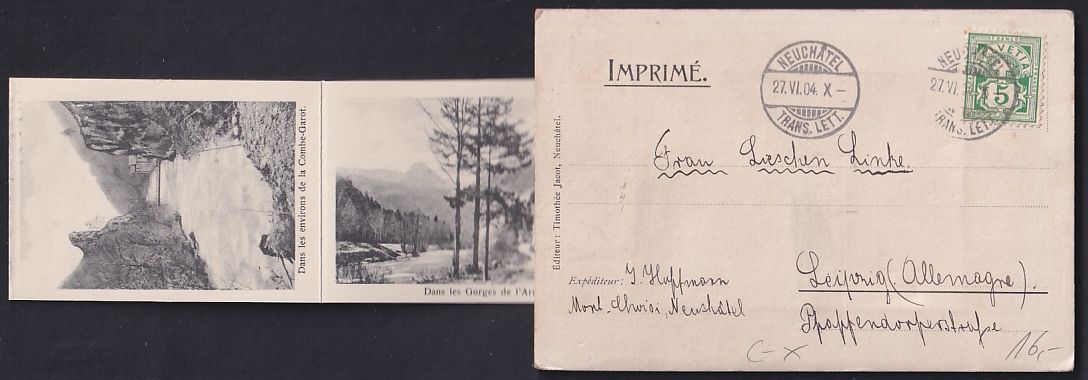 Dans les environs de la Combe-Garot.
Dans les Gorges de l'Are
IMPRIMÉ.
NEUCHÂTEL
27.VI.04. X-
TRANS. LETT.
HELVETIA
FRANCO
5
27.VI.
TRANS. LETT.
Editeur: Timothée Jacot, Neuchâtel.
Frau Lieschen Linke.
Expéditeur: J. Hoffmann
Neuchâtel
Leipzig (Allemagne).
Pfaffendorferstraße
C-X
16,-